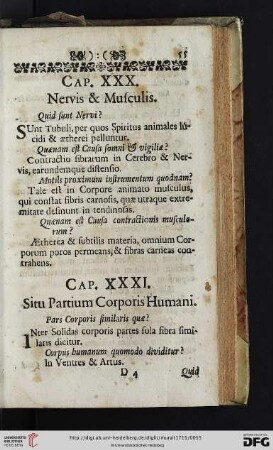 55
CAP. XXX.
Nervis & Musculis.
Quid sunt Nervi?
SUnt Tubuli, per quos Spiritus animales lu-
cidi & ætherei pelluntur.
Quænam est Causa somni & vigiliæ?
Contractio fibrarum in Cerebro & Ner-
vis, earundemque distensio.
Motûs proximum instrumentum quodnam?
Tale est in Corpore animato musculus,
qui constat fibris carnosis, quæ utraque extre-
mitate desinunt in tendinosas.
Quænam est Causa contractionis musculo-
rum?
Ætherea & subtilis materia, omnium Cor-
porum poros permeans, & fibras carneas con-
trahens.
CAP. XXXI.
Situ Partium Corporis Humani.
Pars Corporis similaris quæ?
INter Solidas corporis partes sola fibra simi-
laris dicitur.
Corpus humanum quomodo dividitur?
In Ventres & Artus.
D 4 Quid
UNIVERSITÄTS-
BIBLIOTHEK
HEIDELBERG
Gefördert durch
DFG